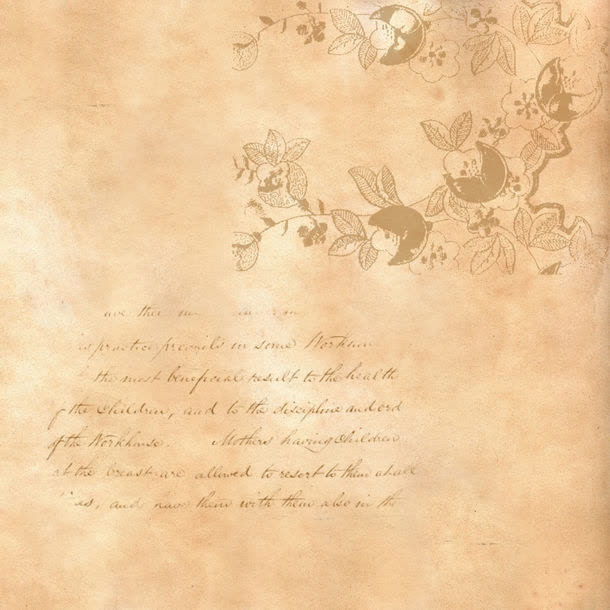 ave ther
practice prevails in some Workhou
the most beneficial result to the health
of the Children, and to the discipline and ord
of the Workhouse. Mothers having Children
at the breast are allowed to resort to them at all
es, and have them with them also in the